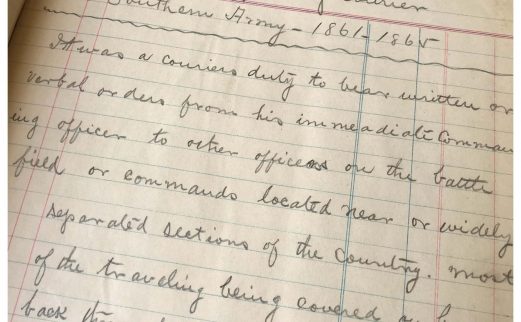 Courier
Southern Army - 1861-1865
It was a couriers duty to bear written or
verbal orders from his immeadiate Comman
ing officer to other officers on the battle
field or commands located near or widely
separated sections of the Country. most
of the traveling being covered
back